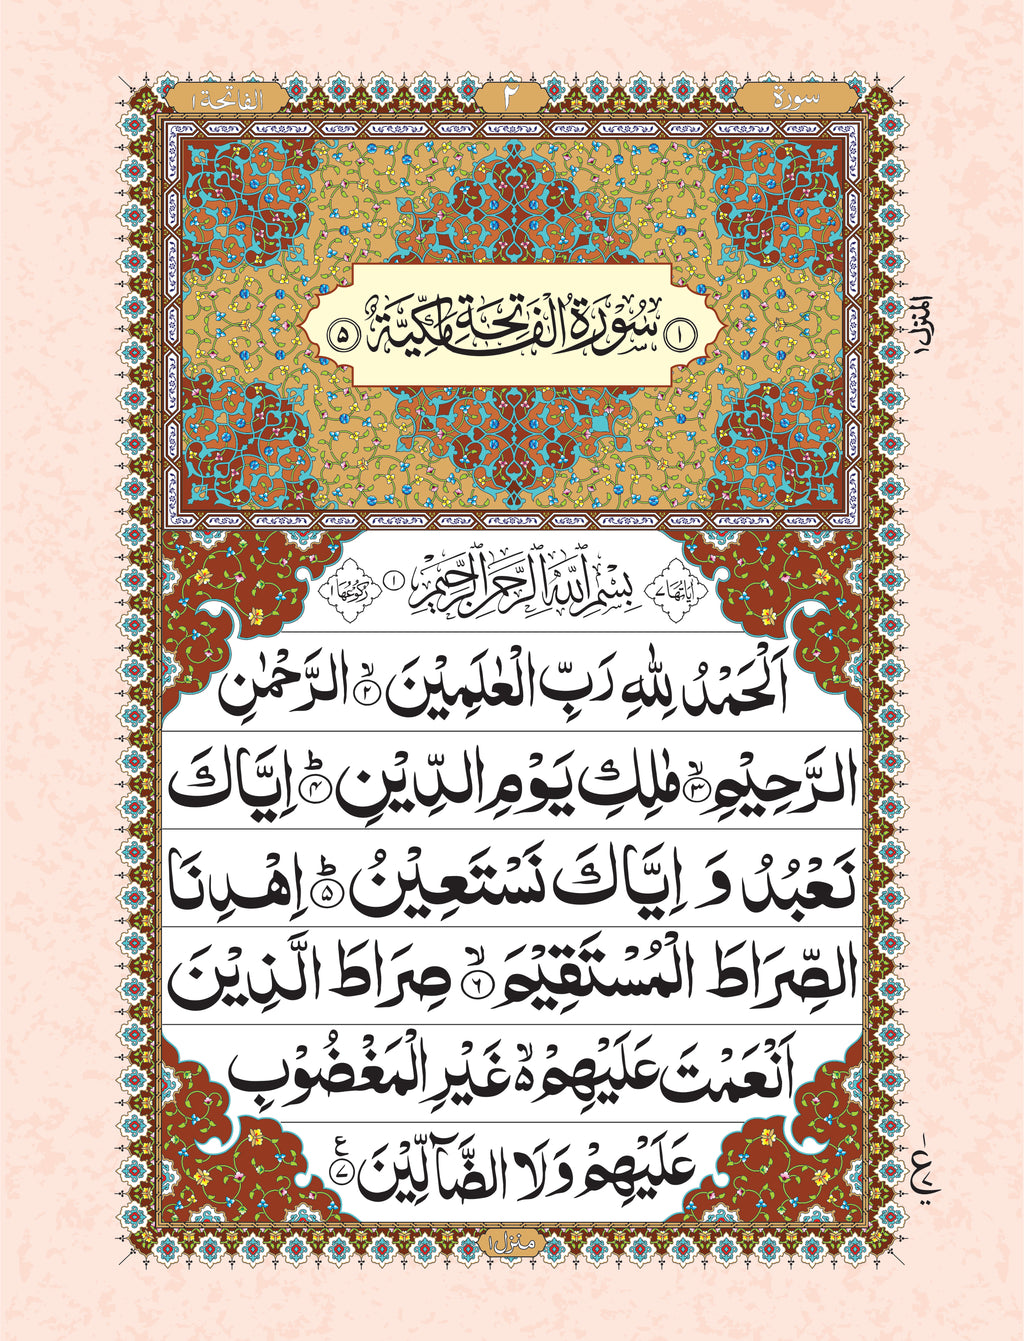 سورة ٢ الفاتحة ١
١ سُوْرَةُ الْفَاتِحَةِ مَكِّيَّةٌ ٥
المنزل ١
اٰیَاتُهَا ٧ بِسْمِ اللّٰهِ الرَّحْمٰنِ الرَّحِيْمِ ١ رُكُوْعُهَا ١
اَلْحَمْدُ لِلّٰهِ رَبِّ الْعٰلَمِيْنَ ۙ۲ الرَّحْمٰنِ
الرَّحِيْمِ ۙ۳ مٰلِكِ يَوْمِ الدِّيْنِ ؕ۴ اِيَّاكَ
نَعْبُدُ وَ اِيَّاكَ نَسْتَعِيْنُ ؕ۵ اِهْدِنَا
الصِّرَاطَ الْمُسْتَقِيْمَ ۙ۶ صِرَاطَ الَّذِيْنَ
اَنْعَمْتَ عَلَيْهِمْ ۙ۵ غَيْرِ الْمَغْضُوْبِ
عَلَيْهِمْ وَلَا الضَّآلِّيْنَ ۷ ع
ع ٧
منزل ١